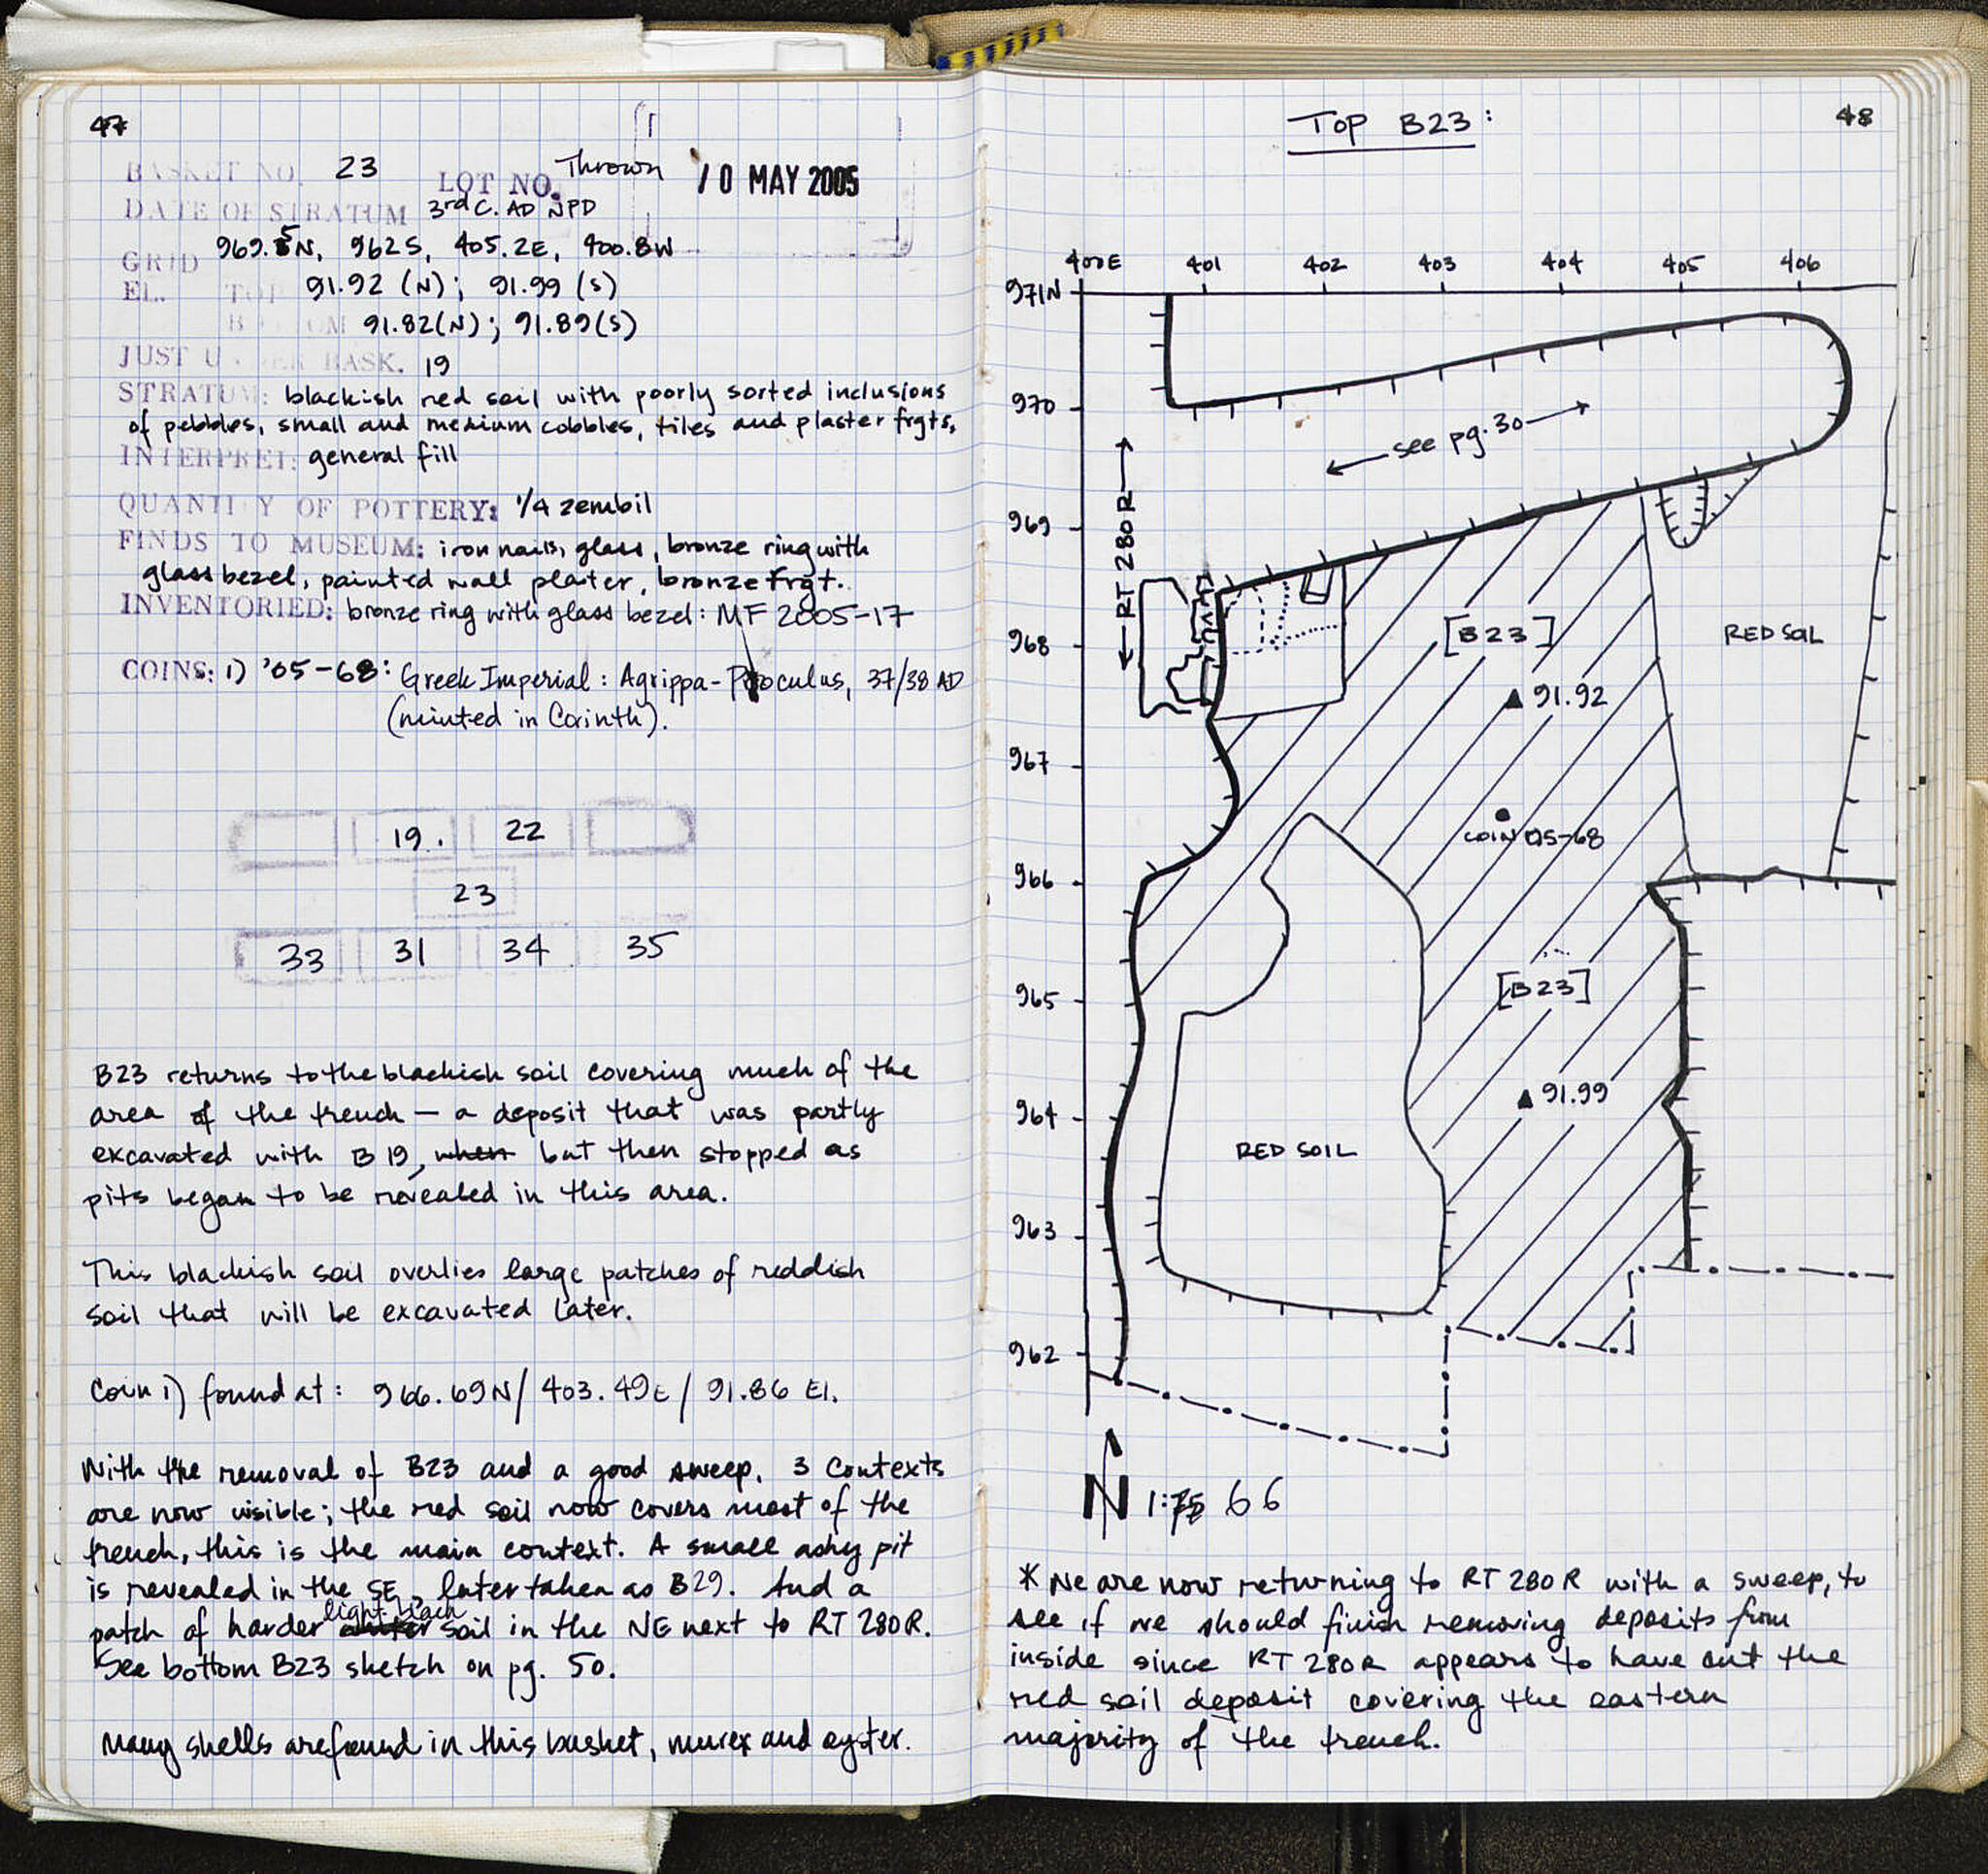 47
BASKET NO. 23
LOT NO. Thrown
10 MAY 2005
DATE OF STRATUM 3rd C. AD NPD
GRID 969.5N, 962S, 405.2E, 400.8W
EL. TOP 91.92 (N); 91.99 (S)
BOTTOM 91.82(N); 91.89(S)
JUST UNDER BASK. 19
STRATUM: blackish red soil with poorly sorted inclusions
of pebbles, small and medium cobbles, tiles and plaster frgts.
INTERPRET: general fill
QUANTITY OF POTTERY: 1/4 zembil
FINDS TO MUSEUM: iron nails, glass, bronze ring with
glass bezel, painted wall plaster, bronze frgt.
INVENTORIED: bronze ring with glass bezel: MF 2005-17
COINS: 1) '05-68: Greek Imperial: Agrippa-Proculus, 37/38 AD
(minted in Corinth).
19. 22
23
33 31 34 35
B23 returns to the blackish soil covering much of the
area of the trench — a deposit that was partly
excavated with B19, when but then stopped as
pits began to be revealed in this area.
This blackish soil overlies large patches of reddish
soil that will be excavated later.
Coin 1) found at: 966.69N/403.49E/91.86 El.
With the removal of B23 and a good sweep, 3 contexts
are now visible; the red soil now covers most of the
trench, this is the main context. A small ashy pit
is revealed in the SE, later taken as B29. And a
patch of harder light black soil in the NE next to RT 280R.
See bottom B23 sketch on pg. 50.
Many shells are found in this basket, murex and oyster.
48
TOP B23:
400E 401 402 403 404 405 406
971N
970
← see pg. 30 →
969
← RT 280R →
968
[B23]
RED SOIL
▲ 91.92
967
COIN 05-68
966
965
[B23]
964
▲ 91.99
RED SOIL
963
962
N 1:75 66
* We are now returning to RT 280R with a sweep, to
see if we should finish removing deposits from
inside since RT 280R appears to have cut the
red soil deposit covering the eastern
majority of the trench.